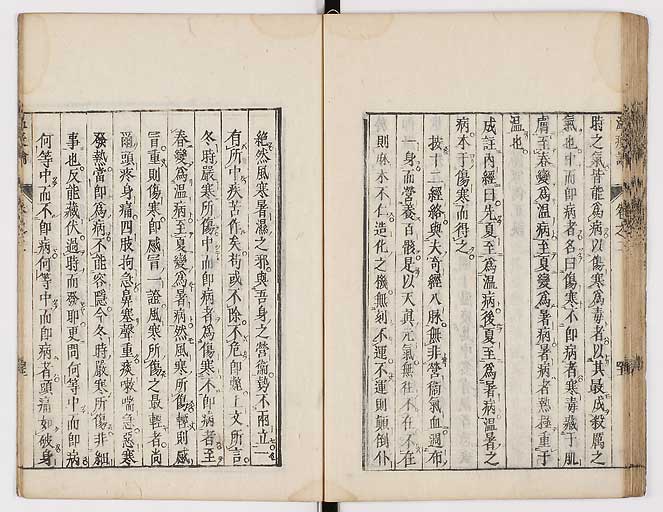 時之氣皆能為病以傷寒為毒者以其最成殺厲之
氣也中而即病者名曰傷寒不即病者寒毒藏于肌
膚至春變為温病至夏變為暑病暑病者熱極重于
温也
成註內經曰先夏至為温病後夏至為暑病温暑之
病本于傷寒而得之
按十二經絡與夫奇經八脉無非營衞氣血週布
一身而營養百骸是以天真元氣無往不在不在
則麻木不仁造化之機無刻不運不運則顛倒仆
絶然風寒暑濕之邪與吾身之營衞勢不兩立一
有所中疾苦作矣苟或不除不危即斃上文所言
冬時嚴寒所傷中而即病者為傷寒不即病者至
春變為温病至夏變為暑病然風寒所傷輕則感
冒重則傷寒即感冒一證風寒所傷之最輕者尚
爾頭疼身痛四肢拘急鼻塞聲重痰嗽喘急惡寒
發熱當即為病不能容隱今冬時嚴寒所傷非細
事也反能藏伏過時而發耶更問何等中而即病
何等中而不即病何等中而即病者頭痛如破身